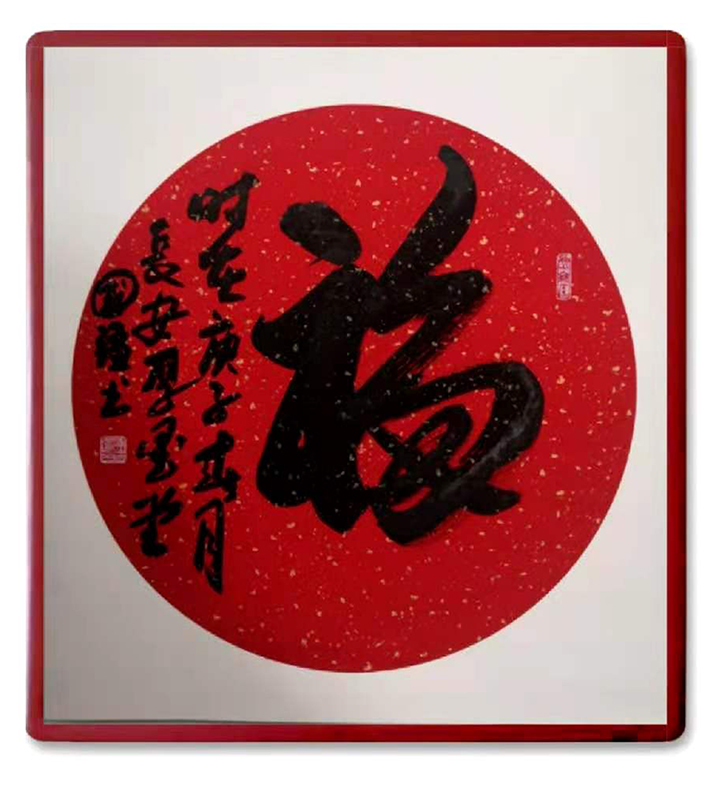 福
时在庚子春月
长安翠墨堂
国强书